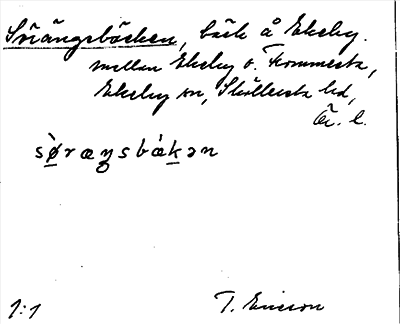 Sörängsbäcken, bäck å Ekeby.
mellan Ekeby o. Frommesta,
Ekeby sn, Sköllersta hd,
Ör. l.
sø̀ræŋsbækən
1:1
T. Ericson